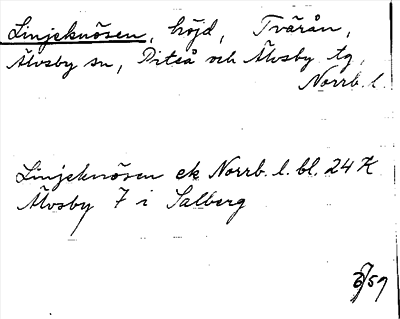 Linjeknösen, höjd, Tvärån,
Älvsby sn, Piteå och Älvsby tg,
Norrb. l.
Linjeknösen ek Norrb. l. bl. 24 K
Älvsby 7 i Salberg
/59